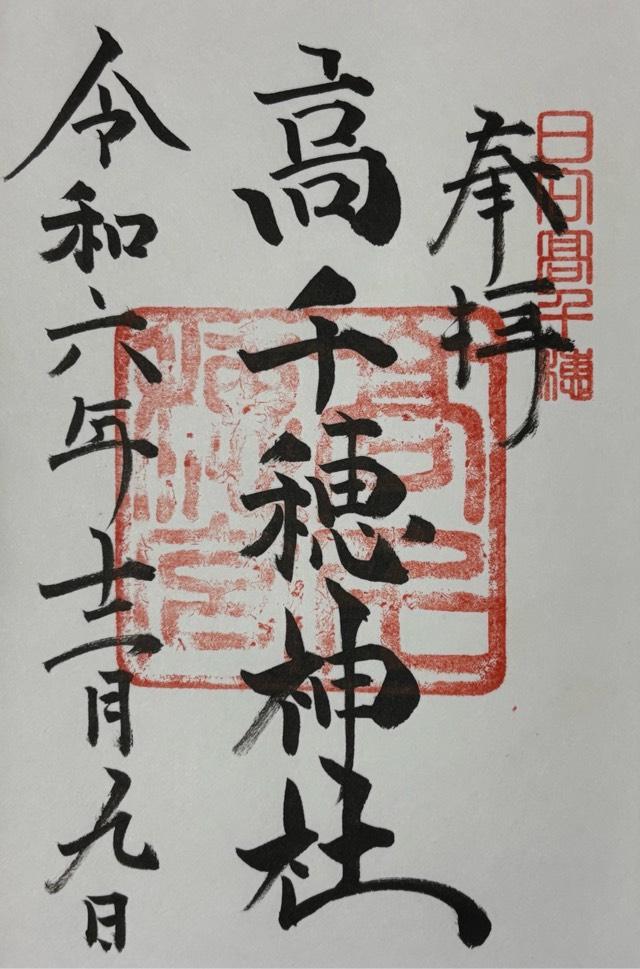 日向髙千穂
奉拝
高千穂神社
令和六年十二月九日